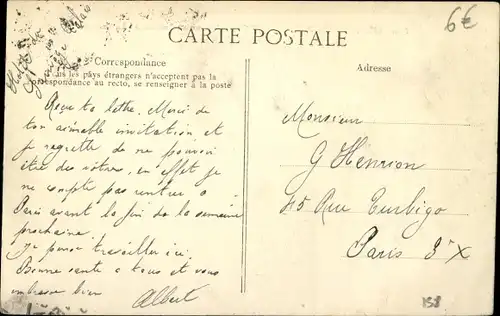 6€
CARTE POSTALE
Correspondance
Tous les pays étrangers n'acceptent pas la
correspondance au recto, se renseigner à la poste
Adresse
Reçu ta lettre. Merci de
ton aimable invitation et
je regrette de ne pouvoir
être des vôtres, en effet je
ne compte pas rentrer à
Paris avant la fin de la semaine
prochaine.
je pense travailler ici.
Bonne santé a tous et vous
embrasse bien
Albert
Monsieur
G Henrion
45 Rue Turbigo
Paris 3e
158